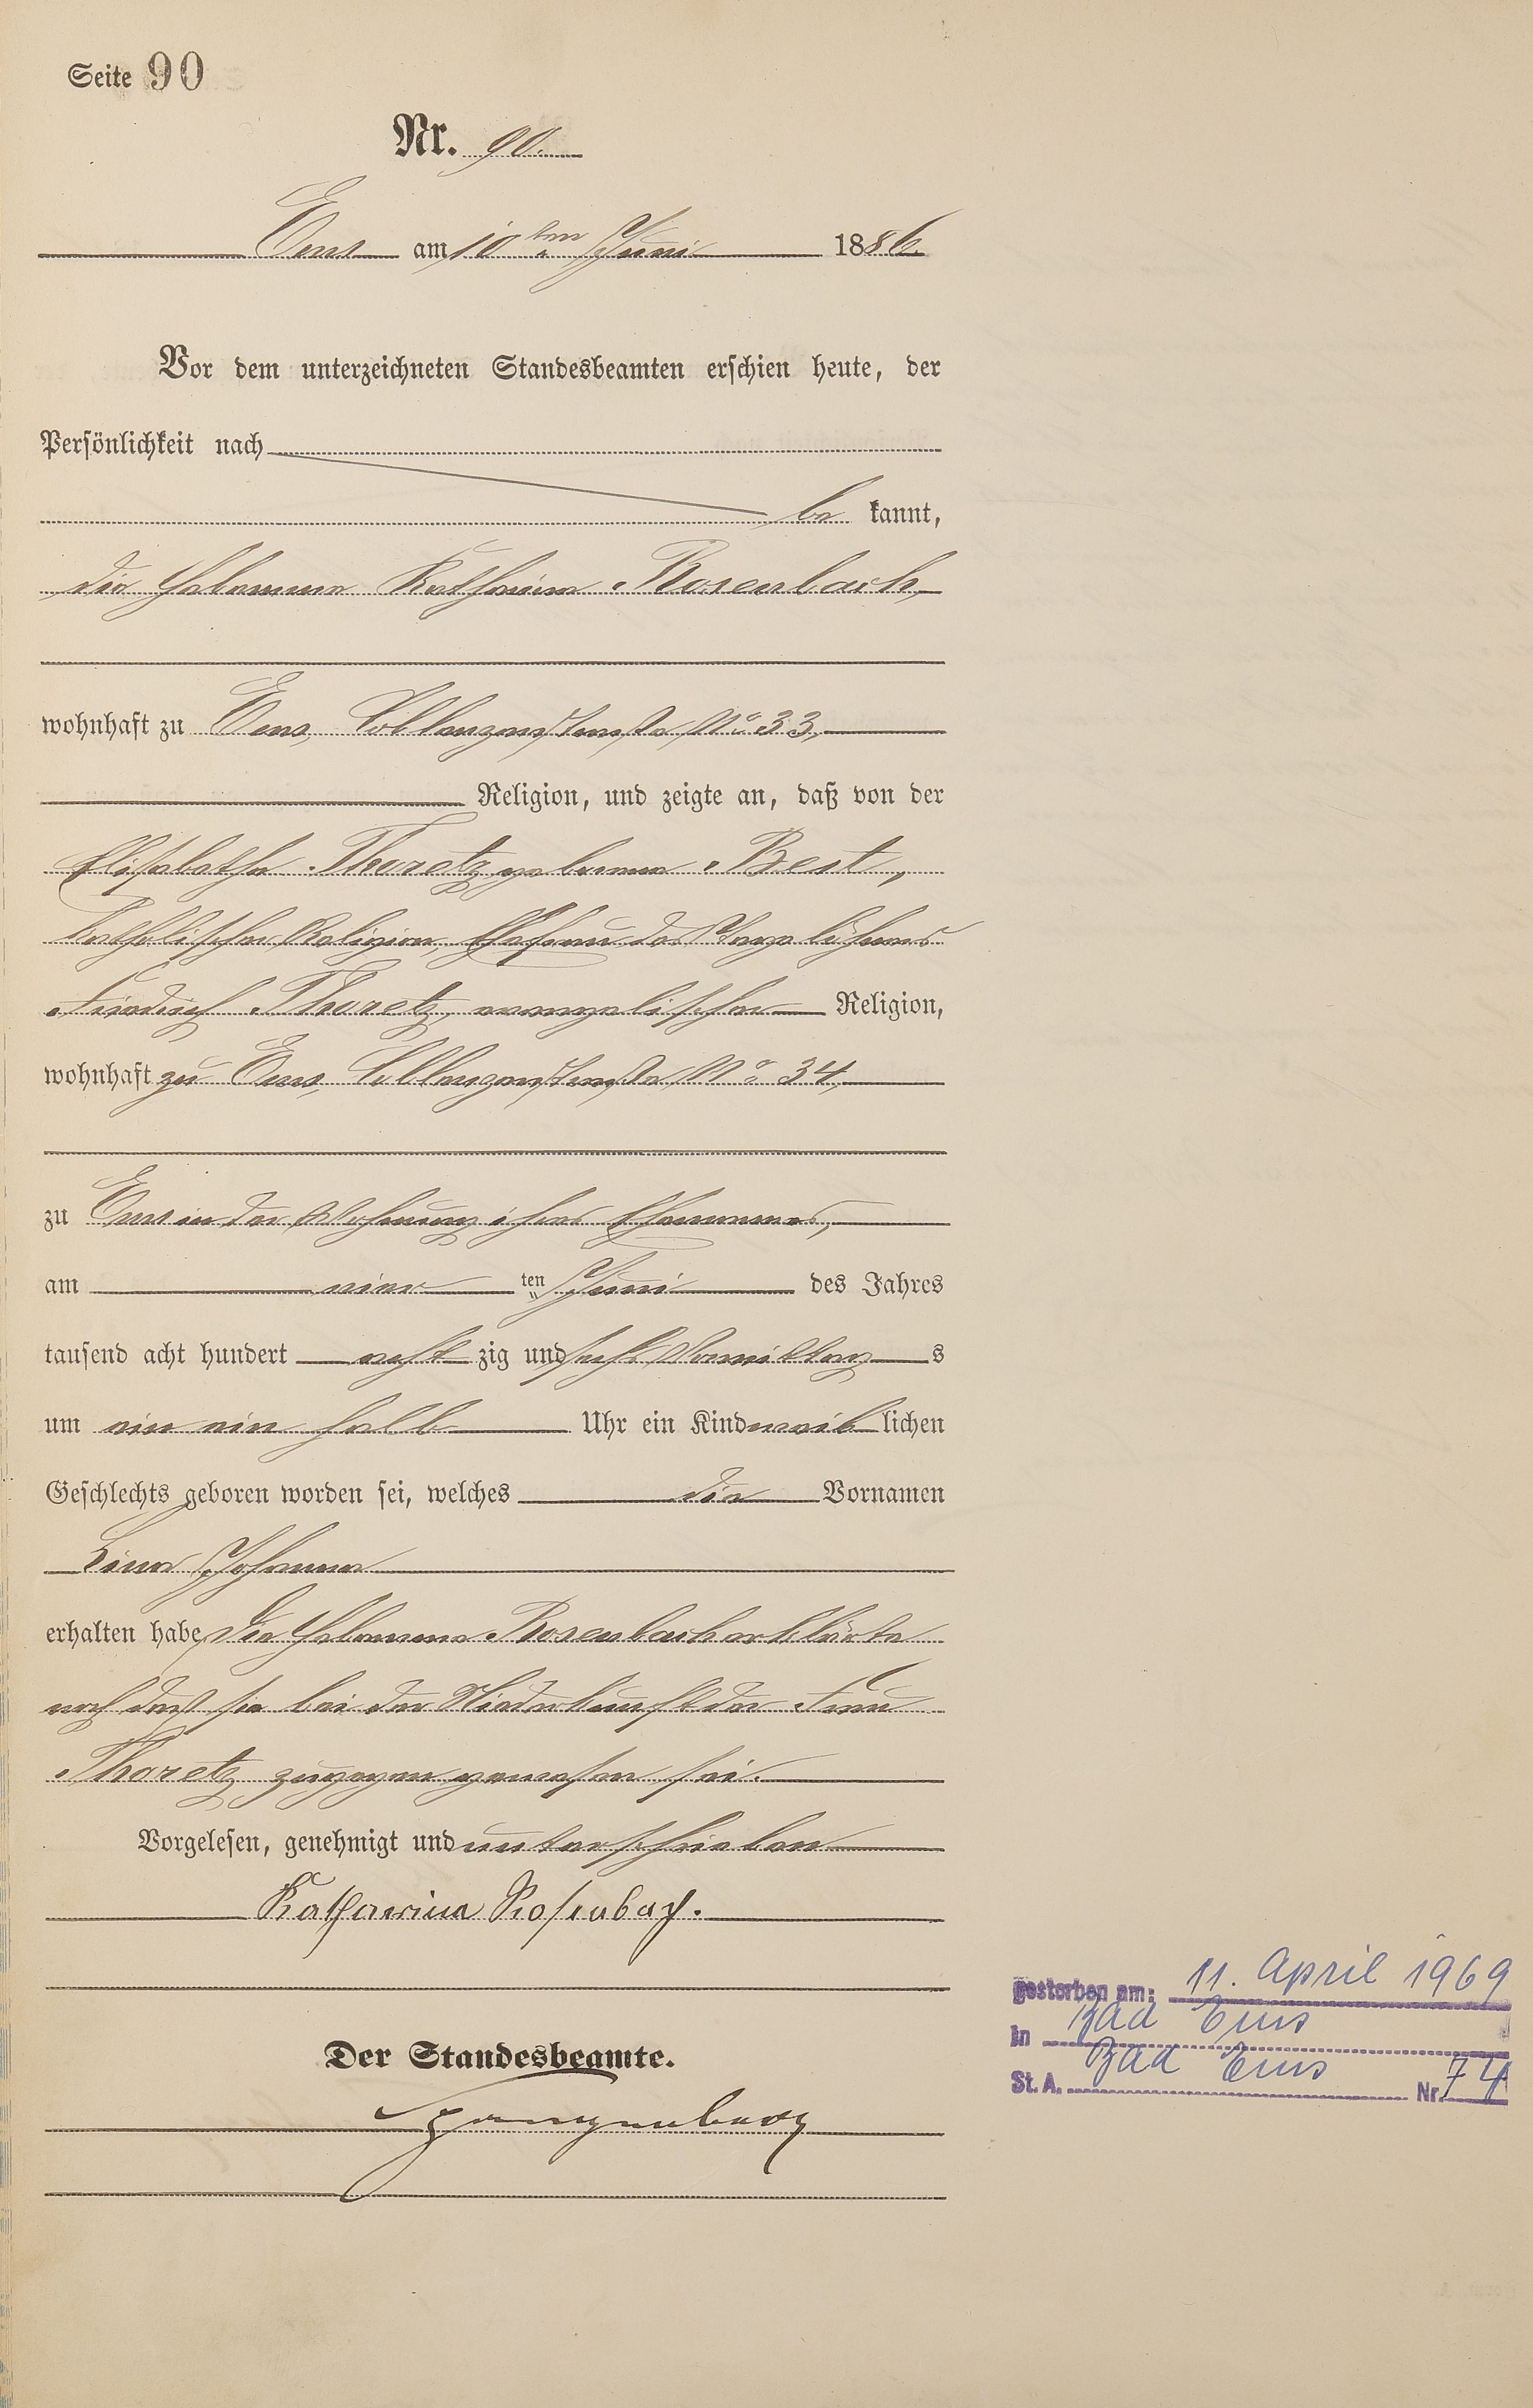 Seite 90
Nr. 90.
Ems am 10ten Juni 1886.
Vor dem unterzeichneten Standesbeamten erschien heute, der
Persönlichkeit nach
be kannt,
die Hebamme Katharina Rosenbach,
wohnhaft zu Ems, Coblenzerstraße No 33,
Religion, und zeigte an, daß von der
Elisabetha Thoretz geborene Best,
katholischer Religion, Ehefrau des Tagelöhners
Friedrich Thoretz, evangelischer Religion,
wohnhaft zu Ems, Coblenzerstraße No 34,
zu Ems in der Wohnung ihres Ehemannes,
am ten Juni des Jahres
tausend acht hundert acht zig und sechs Vormittag s
um ein halb Uhr ein Kind weib lichen
Geschlechts geboren worden sei, welches die Vornamen
Lina Johanna
erhalten habe, die Hebamme Rosenbach erklärte
noch daß sie bei der Niederkunft der Frau
Thoretz zugegen gewesen sei.
Vorgelesen, genehmigt und unterschrieben
Katharina Rosenbach.
Der Standesbeamte.
gestorben am: 11. April 1969
in Bad Ems
St. A. Bad Ems Nr. 74